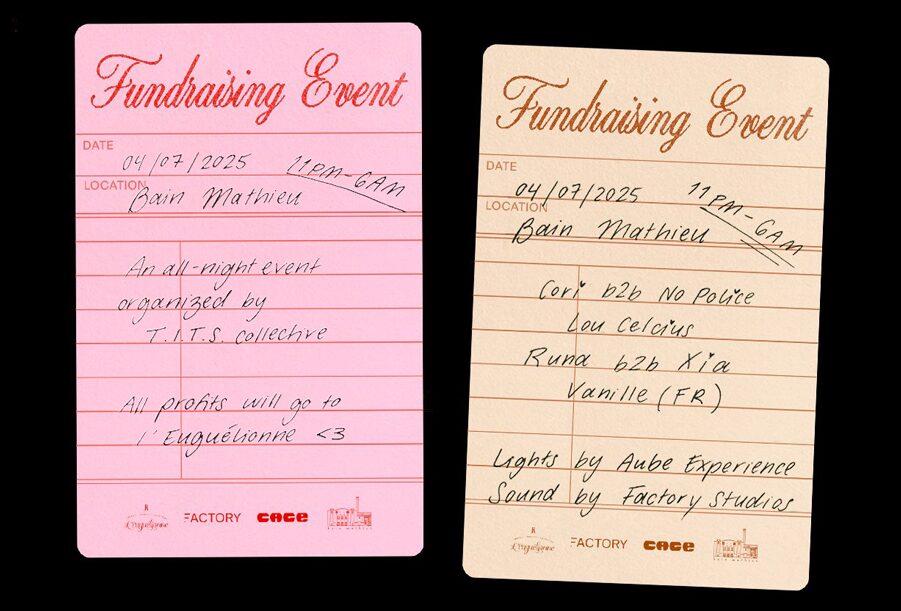 Fundraising Event
DATE
04/07/2025 11PM-6AM
LOCATION
Bain Mathieu
An all-night event
organized by
T.I.T.S. collective
All profits will go to
l'Euguélionne <3
L'euguélionne FACTORY CAGE BAIN MATHIEU
Fundraising Event
DATE
04/07/2025 11PM-6AM
LOCATION
Bain Mathieu
Cori b2b No Police
Lou Celcius
Runa b2b Xia
Vanille (FR)
Lights by Aube Experience
Sound by Factory Studios
L'euguélionne FACTORY CAGE BAIN MATHIEU